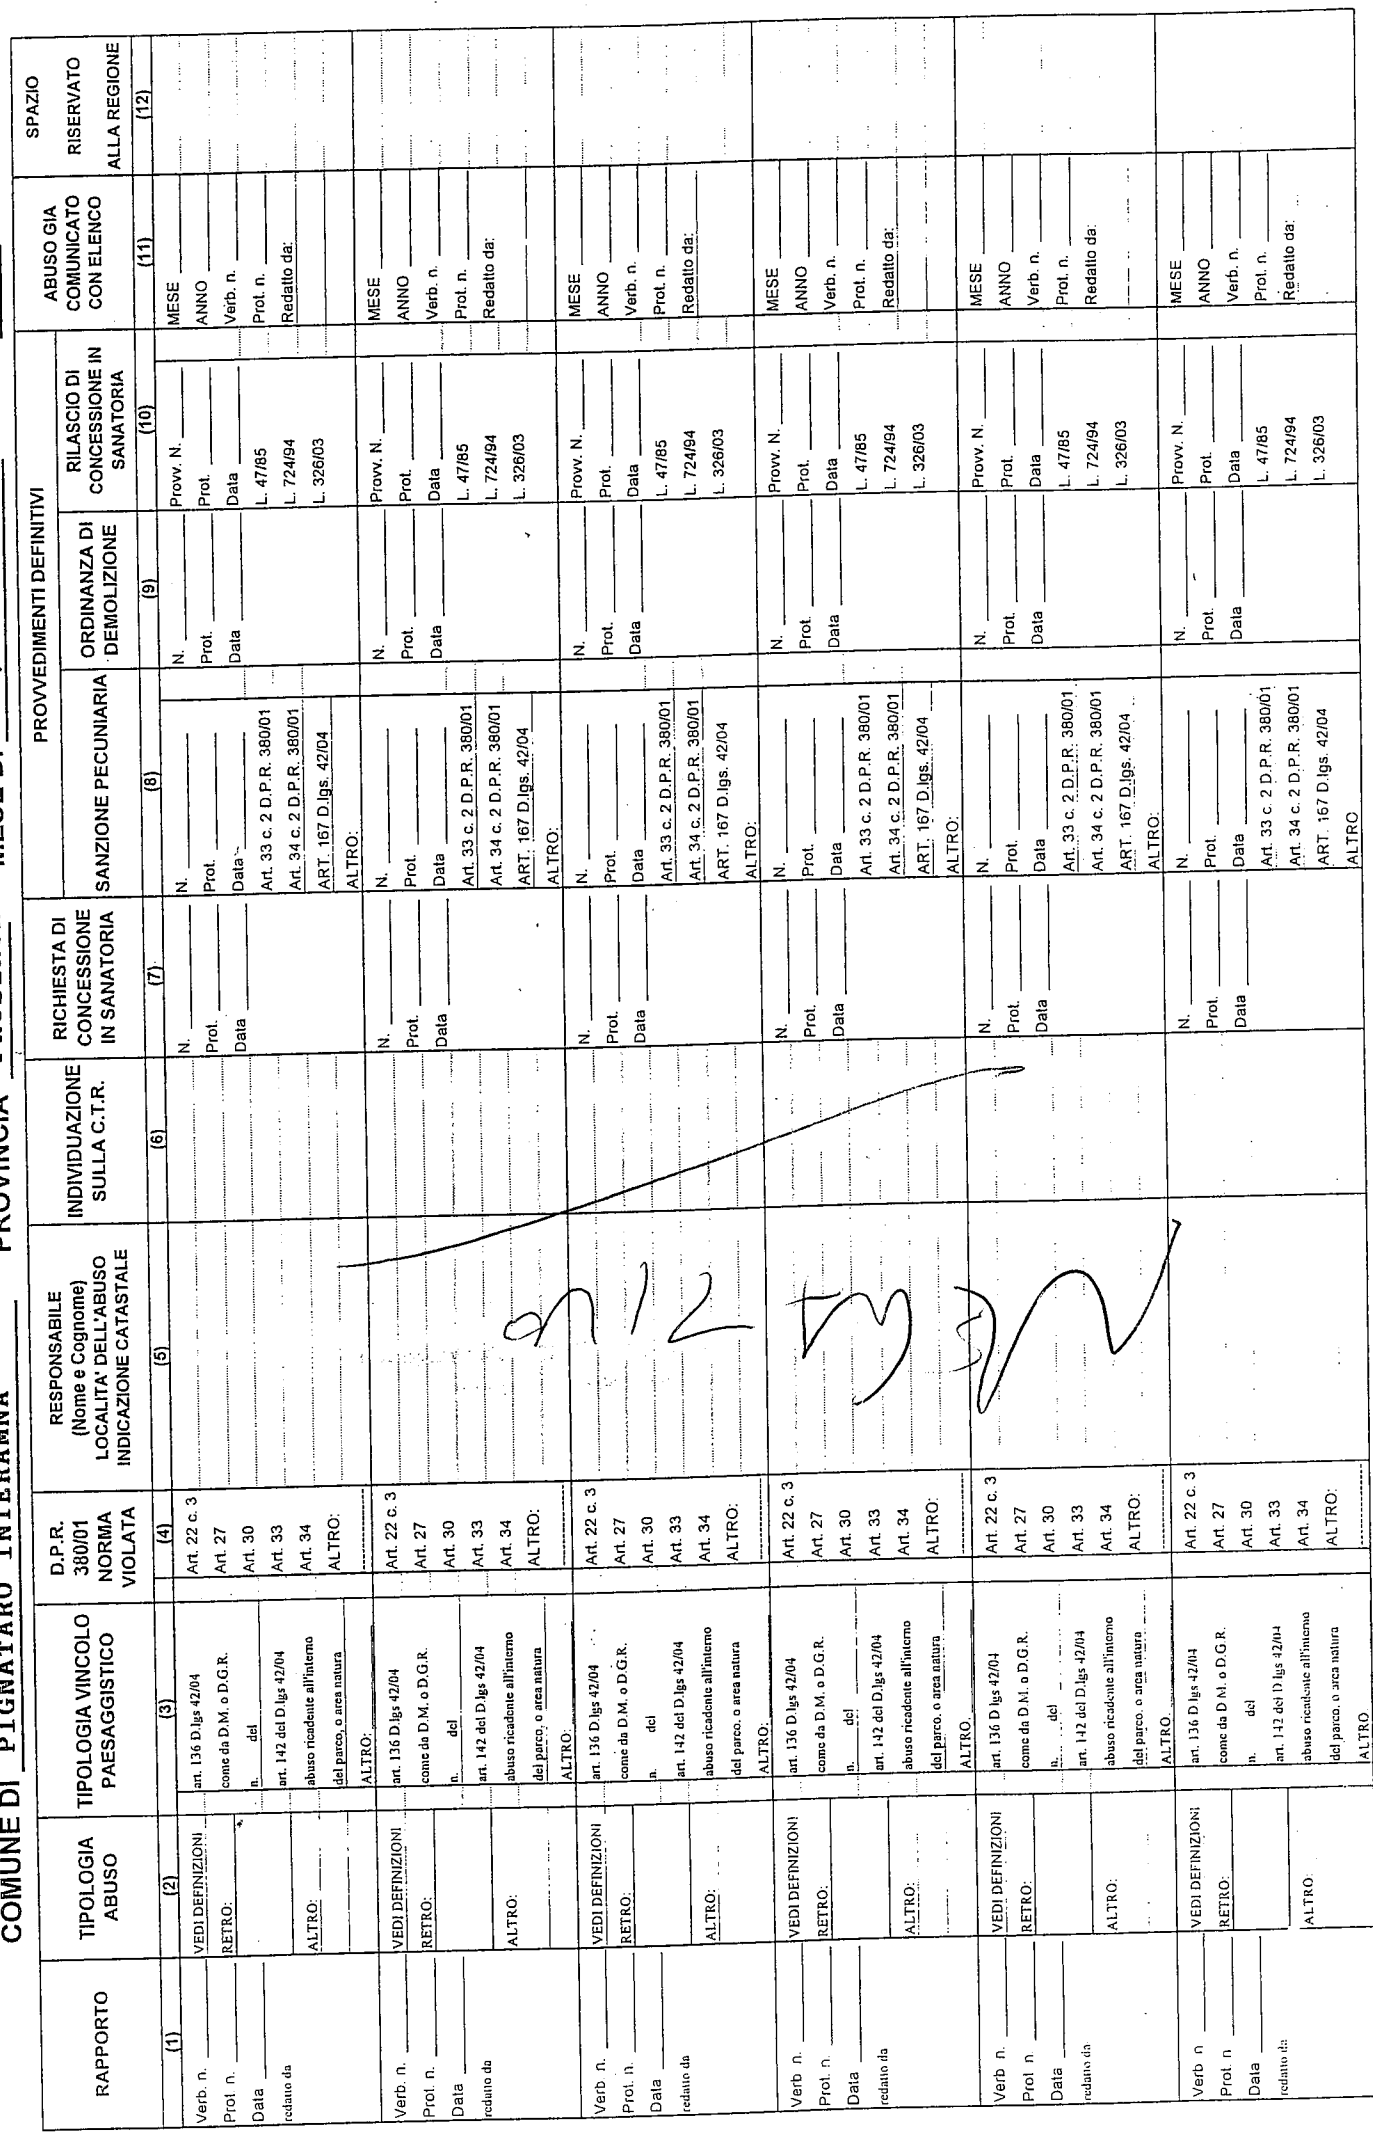 COMUNE DI PIGNATARO INTERAMNA PROVINCIA
SPAZIO RISERVATO ALLA REGIONE
PROVVEDIMENTI DEFINITIVI
RAPPORTO
TIPOLOGIA ABUSO
TIPOLOGIA VINCOLO PAESAGGISTICO
D.P.R. 380/01 NORMA VIOLATA
RESPONSABILE (Nome e Cognome) LOCALITA' DELL'ABUSO INDICAZIONE CATASTALE
INDIVIDUAZIONE SULLA C.T.R.
RICHIESTA DI CONCESSIONE IN SANATORIA
SANZIONE PECUNIARIA
ORDINANZA DI DEMOLIZIONE
RILASCIO DI CONCESSIONE IN SANATORIA
ABUSO GIA COMUNICATO CON ELENCO
(1) (2) (3) (4) (5) (6) (7) (8) (9) (10) (11) (12)
Verb. n.
Prot. n.
Data
redatto da
VEDI DEFINIZIONI
RETRO:
ALTRO:
art. 136 D.lgs 42/04
come da D.M. o D.G.R.
n. del
art. 142 del D.lgs 42/04
abuso ricadente all'interno
del parco, o area natura
ALTRO:
Art. 22 c. 3
Art. 27
Art. 30
Art. 33
Art. 34
ALTRO:
N.
Prot.
Data
N.
Prot.
Data
Art. 33 c. 2 D.P.R. 380/01
Art. 34 c. 2 D.P.R. 380/01
ART. 167 D.lgs. 42/04
ALTRO:
N.
Prot.
Data
Provv. N.
Prot.
Data
L. 47/85
L. 724/94
L. 326/03
MESE
ANNO
Verb. n.
Prot. n.
Redatto da:
Verb. n.
Prot. n.
Data
redatto da
VEDI DEFINIZIONI
RETRO:
ALTRO:
art. 136 D.lgs 42/04
come da D.M. o D.G.R.
n. del
art. 142 del D.lgs 42/04
abuso ricadente all'interno
del parco, o area natura
ALTRO:
Art. 22 c. 3
Art. 27
Art. 30
Art. 33
Art. 34
ALTRO:
N.
Prot.
Data
N.
Prot.
Data
Art. 33 c. 2 D.P.R. 380/01
Art. 34 c. 2 D.P.R. 380/01
ART. 167 D.lgs. 42/04
ALTRO:
N.
Prot.
Data
Provv. N.
Prot.
Data
L. 47/85
L. 724/94
L. 326/03
MESE
ANNO
Verb. n.
Prot. n.
Redatto da:
Verb. n.
Prot. n.
Data
redatto da
VEDI DEFINIZIONI
RETRO:
ALTRO:
art. 136 D.lgs 42/04
come da D.M. o D.G.R.
n. del
art. 142 del D.lgs 42/04
abuso ricadente all'interno
del parco. o area natura
ALTRO:
Art. 22 c. 3
Art. 27
Art. 30
Art. 33
Art. 34
ALTRO:
N.
Prot.
Data
N.
Prot.
Data
Art. 33 c. 2 D.P.R. 380/01
Art. 34 c. 2 D.P.R. 380/01
ART. 167 D.lgs. 42/04
ALTRO:
N.
Prot.
Data
Provv. N.
Prot.
Data
L. 47/85
L. 724/94
L. 326/03
MESE
ANNO
Verb. n.
Prot. n.
Redatto da:
Verb n.
Prot n.
Data
redatto da
VEDI DEFINIZIONI
RETRO:
ALTRO:
art. 136 D.lgs 42/04
come da D.M. o D.G.R.
n. del
art. 142 del D.lgs 42/04
abuso ricadente all'interno
del parco. o area natura
ALTRO
Art. 22 c. 3
Art. 27
Art. 30
Art. 33
Art. 34
ALTRO:
N.
Prot.
Data
N.
Prot.
Data
Art. 33 c. 2 D.P.R. 380/01
Art. 34 c. 2 D.P.R. 380/01
ART. 167 D.lgs. 42/04
ALTRO:
N.
Prot.
Data
Provv. N.
Prot.
Data
L. 47/85
L. 724/94
L. 326/03
MESE
ANNO
Verb. n.
Prot. n.
Redatto da:
Verb n.
Prot n.
Data
redatto da
VEDI DEFINIZIONI
RETRO:
ALTRO:
art. 136 D lgs 42/04
come da D.M. o D.G.R.
n. del
art. 142 del D.lgs 42/04
abuso ricadente all'interno
del parco. o area natura
ALTRO
Art. 22 c. 3
Art. 27
Art. 30
Art. 33
Art. 34
ALTRO:
N.
Prot.
Data
N.
Prot.
Data
Art. 33 c. 2 D.P.R. 380/01
Art. 34 c. 2 D.P.R. 380/01
ART. 167 D.lgs. 42/04
ALTRO:
N.
Prot.
Data
Provv. N.
Prot.
Data
L. 47/85
L. 724/94
L. 326/03
MESE
ANNO
Verb. n.
Prot. n.
Redatto da:
Verb n
Prot. n
Data
redatto da
VEDI DEFINIZIONI
RETRO:
ALTRO:
art. 136 D.lgs 42/04
come da D M. o D.G.R.
n. del
art. 142 del D lgs 42/04
abuso ricadente all'interno
del parco. o area natura
ALTRO
Art. 22 c. 3
Art. 27
Art. 30
Art. 33
Art. 34
ALTRO:
N.
Prot.
Data
N.
Prot.
Data
Art. 33 c. 2 D.P.R. 380/01
Art. 34 c. 2 D.P.R. 380/01
ART. 167 D.lgs. 42/04
ALTRO
N.
Prot.
Data
Provv. N.
Prot.
Data
L. 47/85
L. 724/94
L. 326/03
MESE
ANNO
Verb. n.
Prot. n.
Redatto da: